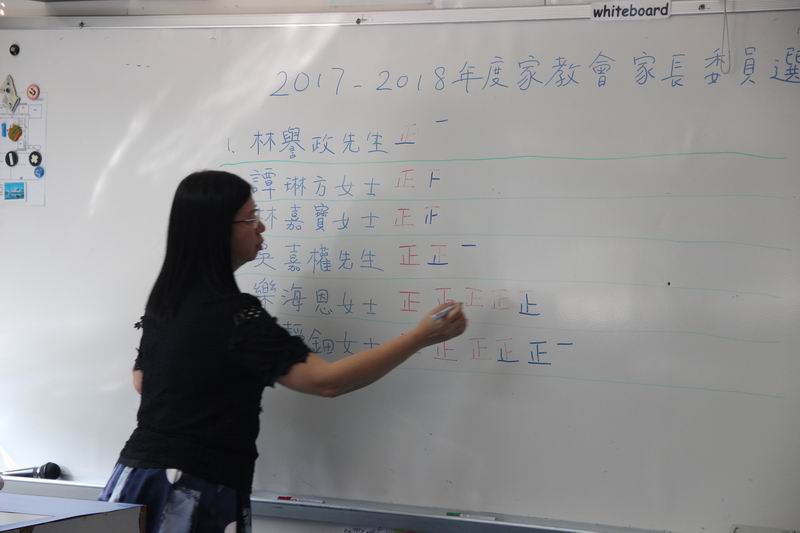 whiteboard
2017-2018年度家教會家長委員選
1. 林譽政先生 正 一
譚琳方女士 正
林嘉寶女士 正 正
吳嘉權先生 正 正 一
樂海恩女士 正 正 正 正 止
鈿女士 正 正 正 正 一